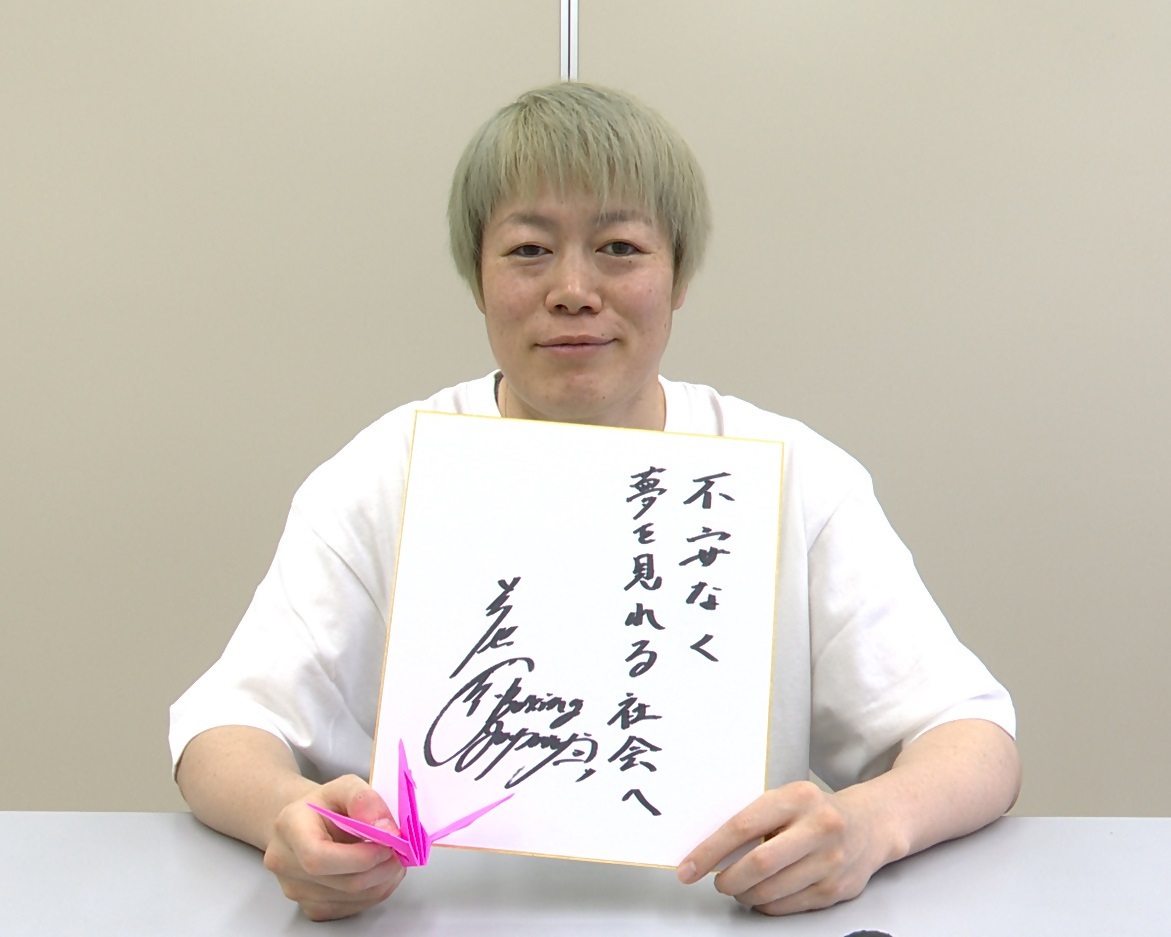 不安なく
夢を見れる社会へ
Boxing